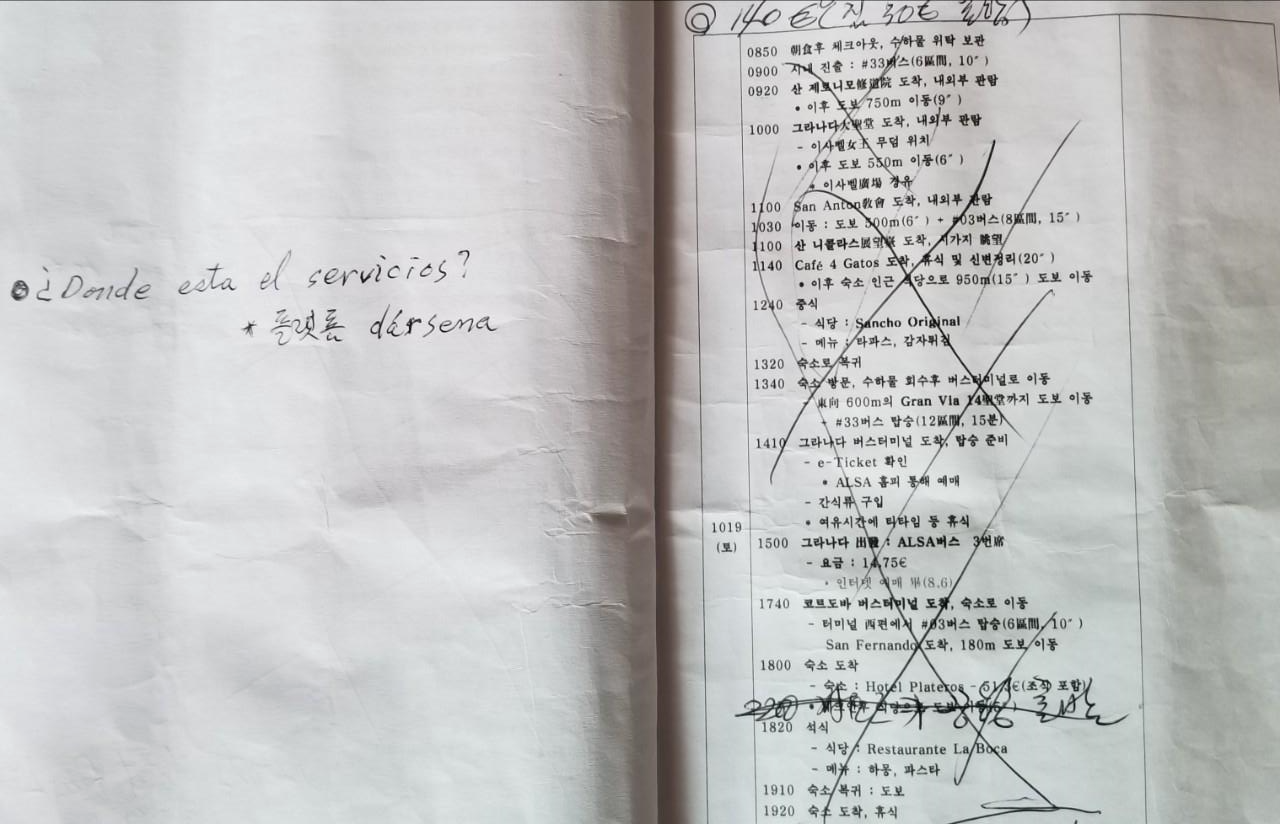 ¿Donde esta el servicios?
* 플랫폼 dársena
◎ 140€
0850 朝食후 체크아웃, 수하물 위탁 보관
0900 시내 진출 : #33버스(6區間, 10″)
0920 산 제로니모修道院 도착, 내외부 관람
• 이후 도보 750m 이동(9″)
1000 그라나다大聖堂 도착, 내외부 관람
- 이사벨女王 무덤 위치
• 이후 도보 550m 이동(6″)
• 이사벨廣場 경유
1100 San Anton敎會 도착, 내외부 관람
1030 이동 : 도보 500m(6″) + #03버스(8區間, 15″)
1100 산 니콜라스展望臺 도착, 시가지 眺望
1140 Café 4 Gatos 도착, 휴식 및 신변정리(20″)
• 이후 숙소 인근 식당으로 950m(15″) 도보 이동
1240 중식
- 식당 : Sancho Original
- 메뉴 : 타파스, 감자튀김
1320 숙소로 복귀
1340 숙소 방문, 수하물 회수후 버스터미널로 이동
- 東向 600m의 Gran Via 14聖堂까지 도보 이동
- #33버스 탑승(12區間, 15분)
1410 그라나다 버스터미널 도착, 탑승 준비
- e-Ticket 확인
• ALSA 홈피 통해 예매
- 간식류 구입
• 여유시간에 티타임 등 휴식
1019
(토)
1500 그라나다 出發 : ALSA버스 3번席
- 요금 : 14,75€
• 인터넷 예매 畢(8.6)
1740 코르도바 버스터미널 도착, 숙소로 이동
- 터미널 西편에서 #03버스 탑승(6區間, 10″)
San Fernando 도착, 180m 도보 이동
1800 숙소 도착
- 숙소 : Hotel Plateros - 51,3€(조식 포함)
1820 석식
- 식당 : Restaurante La Boca
- 메뉴 : 하몽, 파스타
1910 숙소 복귀 : 도보
1920 숙소 도착, 휴식